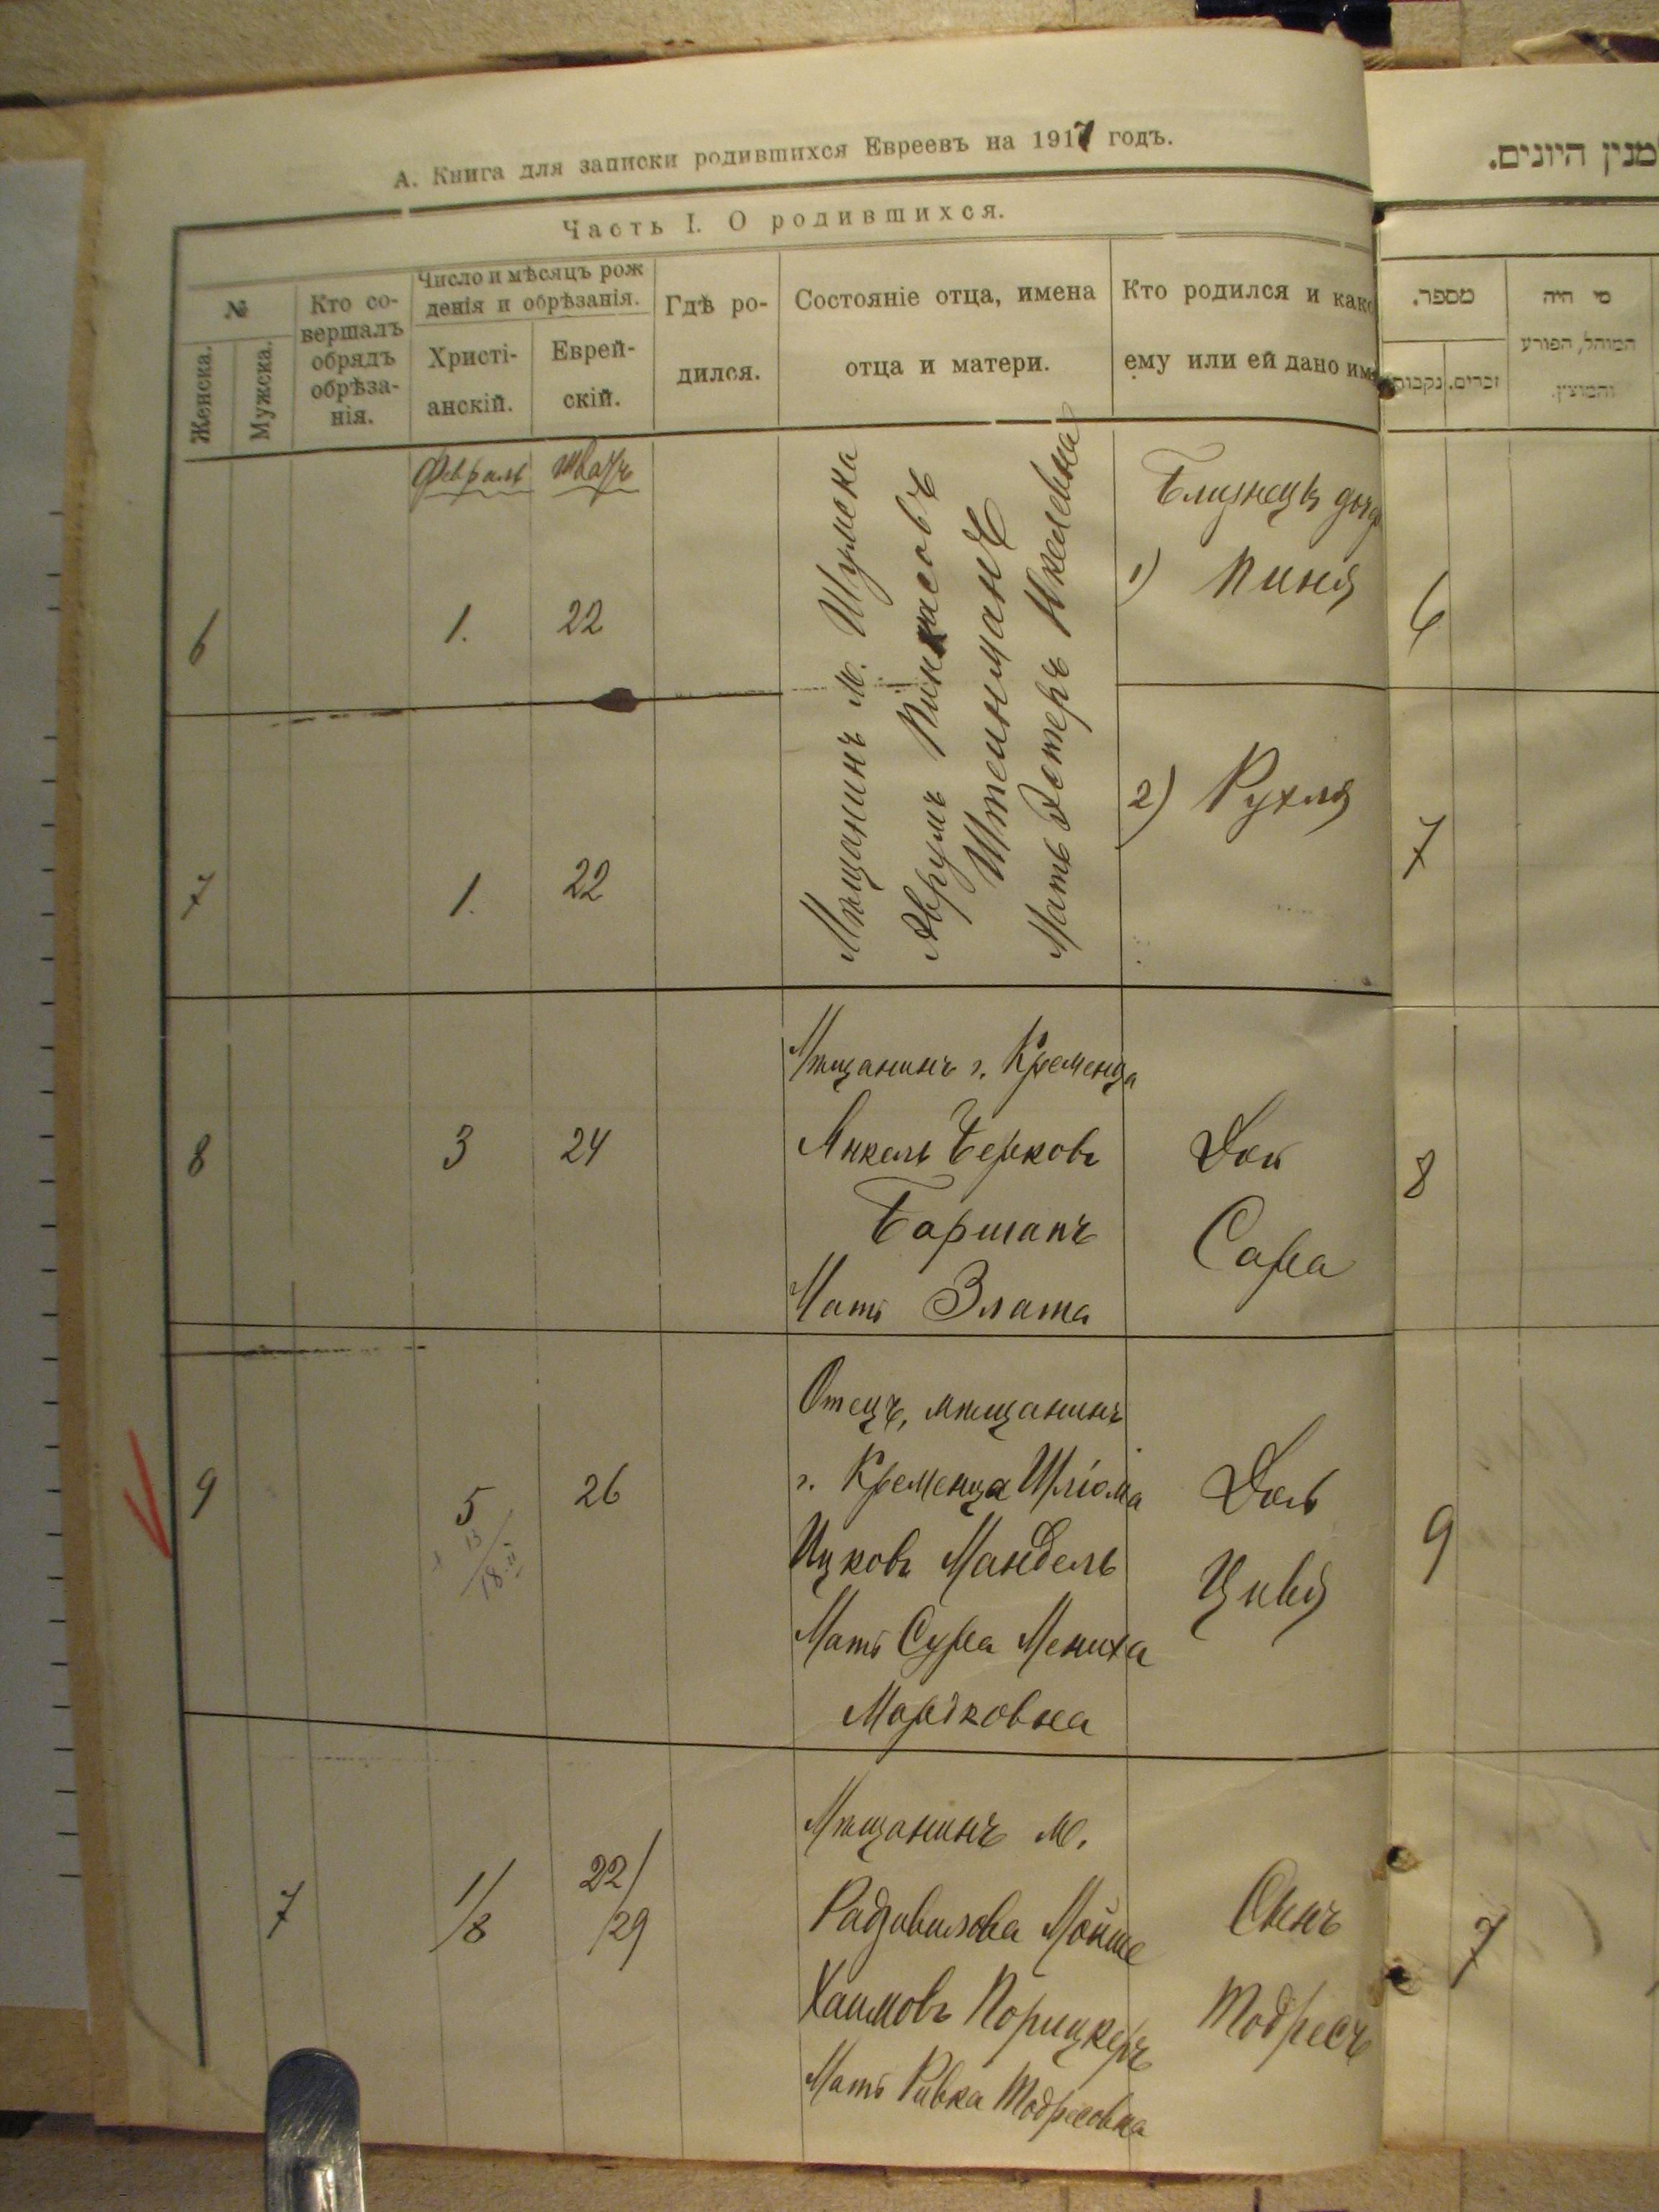 А. Книга для записки родившихся Евреевъ на 1917 годъ.
Часть I. О родившихся.
№
Женска.
Мужска.
Кто со-
вершалъ
обрядъ
обрѣза-
нія.
Число и мѣсяцъ рож
денія и обрѣзанія.
Христі-
анскій.
Еврей-
скій.
Гдѣ ро-
дился.
Состояніе отца, имена
отца и матери.
Кто родился и како
ему или ей дано им
Февраль
Шватъ
6
1.
22
Мѣщанинъ м. Шумска
Аврумъ Пинхасовъ
Штейнманъ
Мать Эстеръ Нкелевна
Близнецы дочер
1) Пиня
7
1.
22
2) Рухля
8
3
24
Мѣщанинъ г. Кременца
Янкель Берковъ
Баршапъ
Мать Злата
Доч
Сара
9
5
13
18 II
26
Отецъ, мѣщанинъ
г. Кременца Шліома
Ицковъ Мандель
Мать Сура Мениха
Марковна
Дочь
Цивя
7
1/8
22/29
Мѣщанинъ м.
Радзивилова Мойше
Хаимовъ Порицкеръ
Мать Ривка Тодресовна
Сынъ
Тодресъ
מנין היונים.
מספר.
נקבות
זכרים.
מי היה
המוהל, הפורע
והמוצץ.
6
7
8
9
7